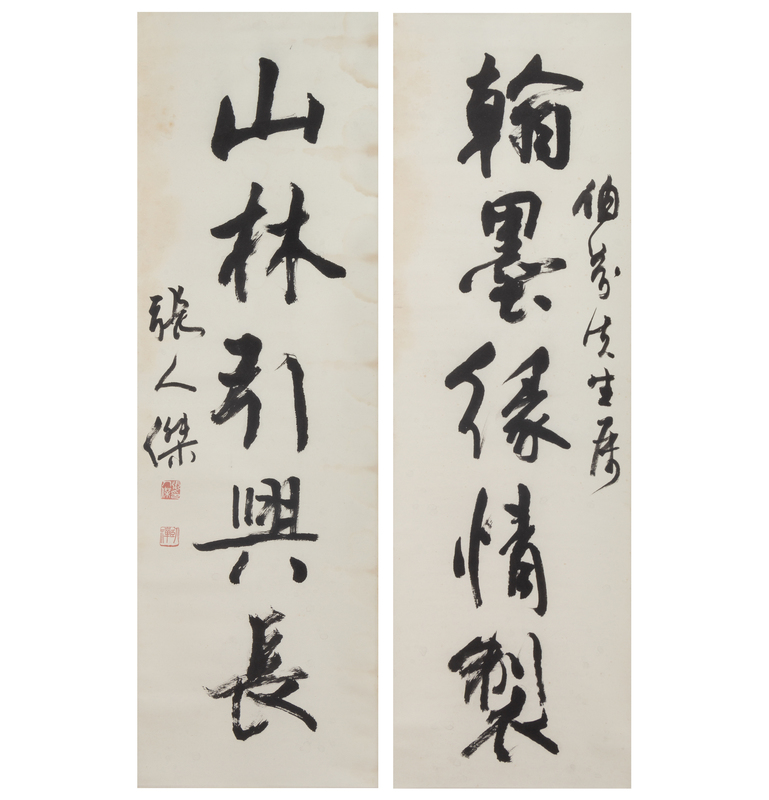 伯先生屬
翰墨緣情製
山林引興長
張人傑